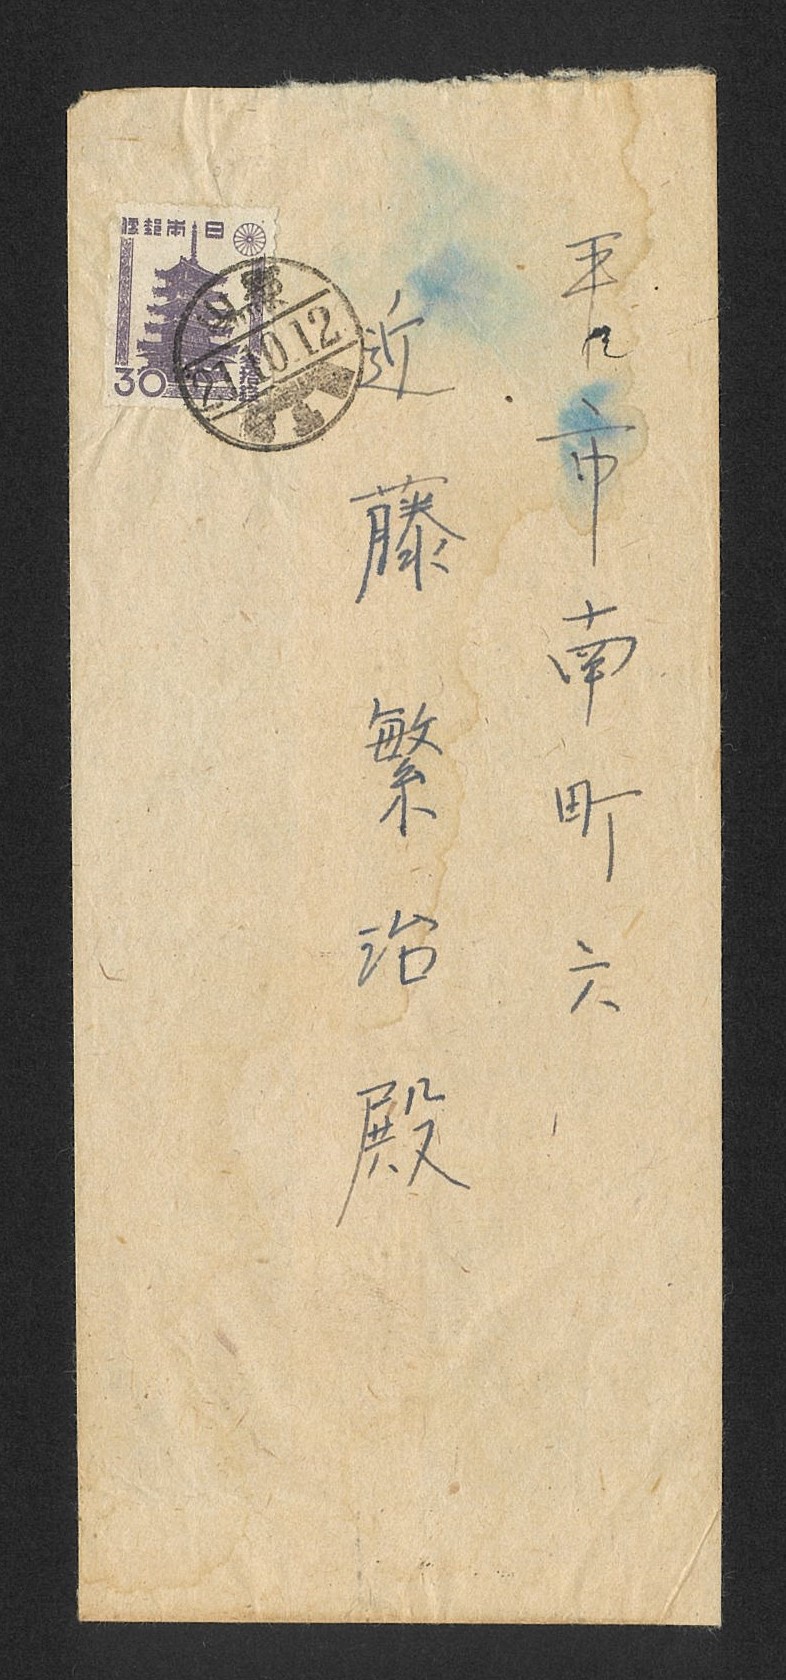 市南町六
近藤繁治殿
日本郵便
30
21.10.12